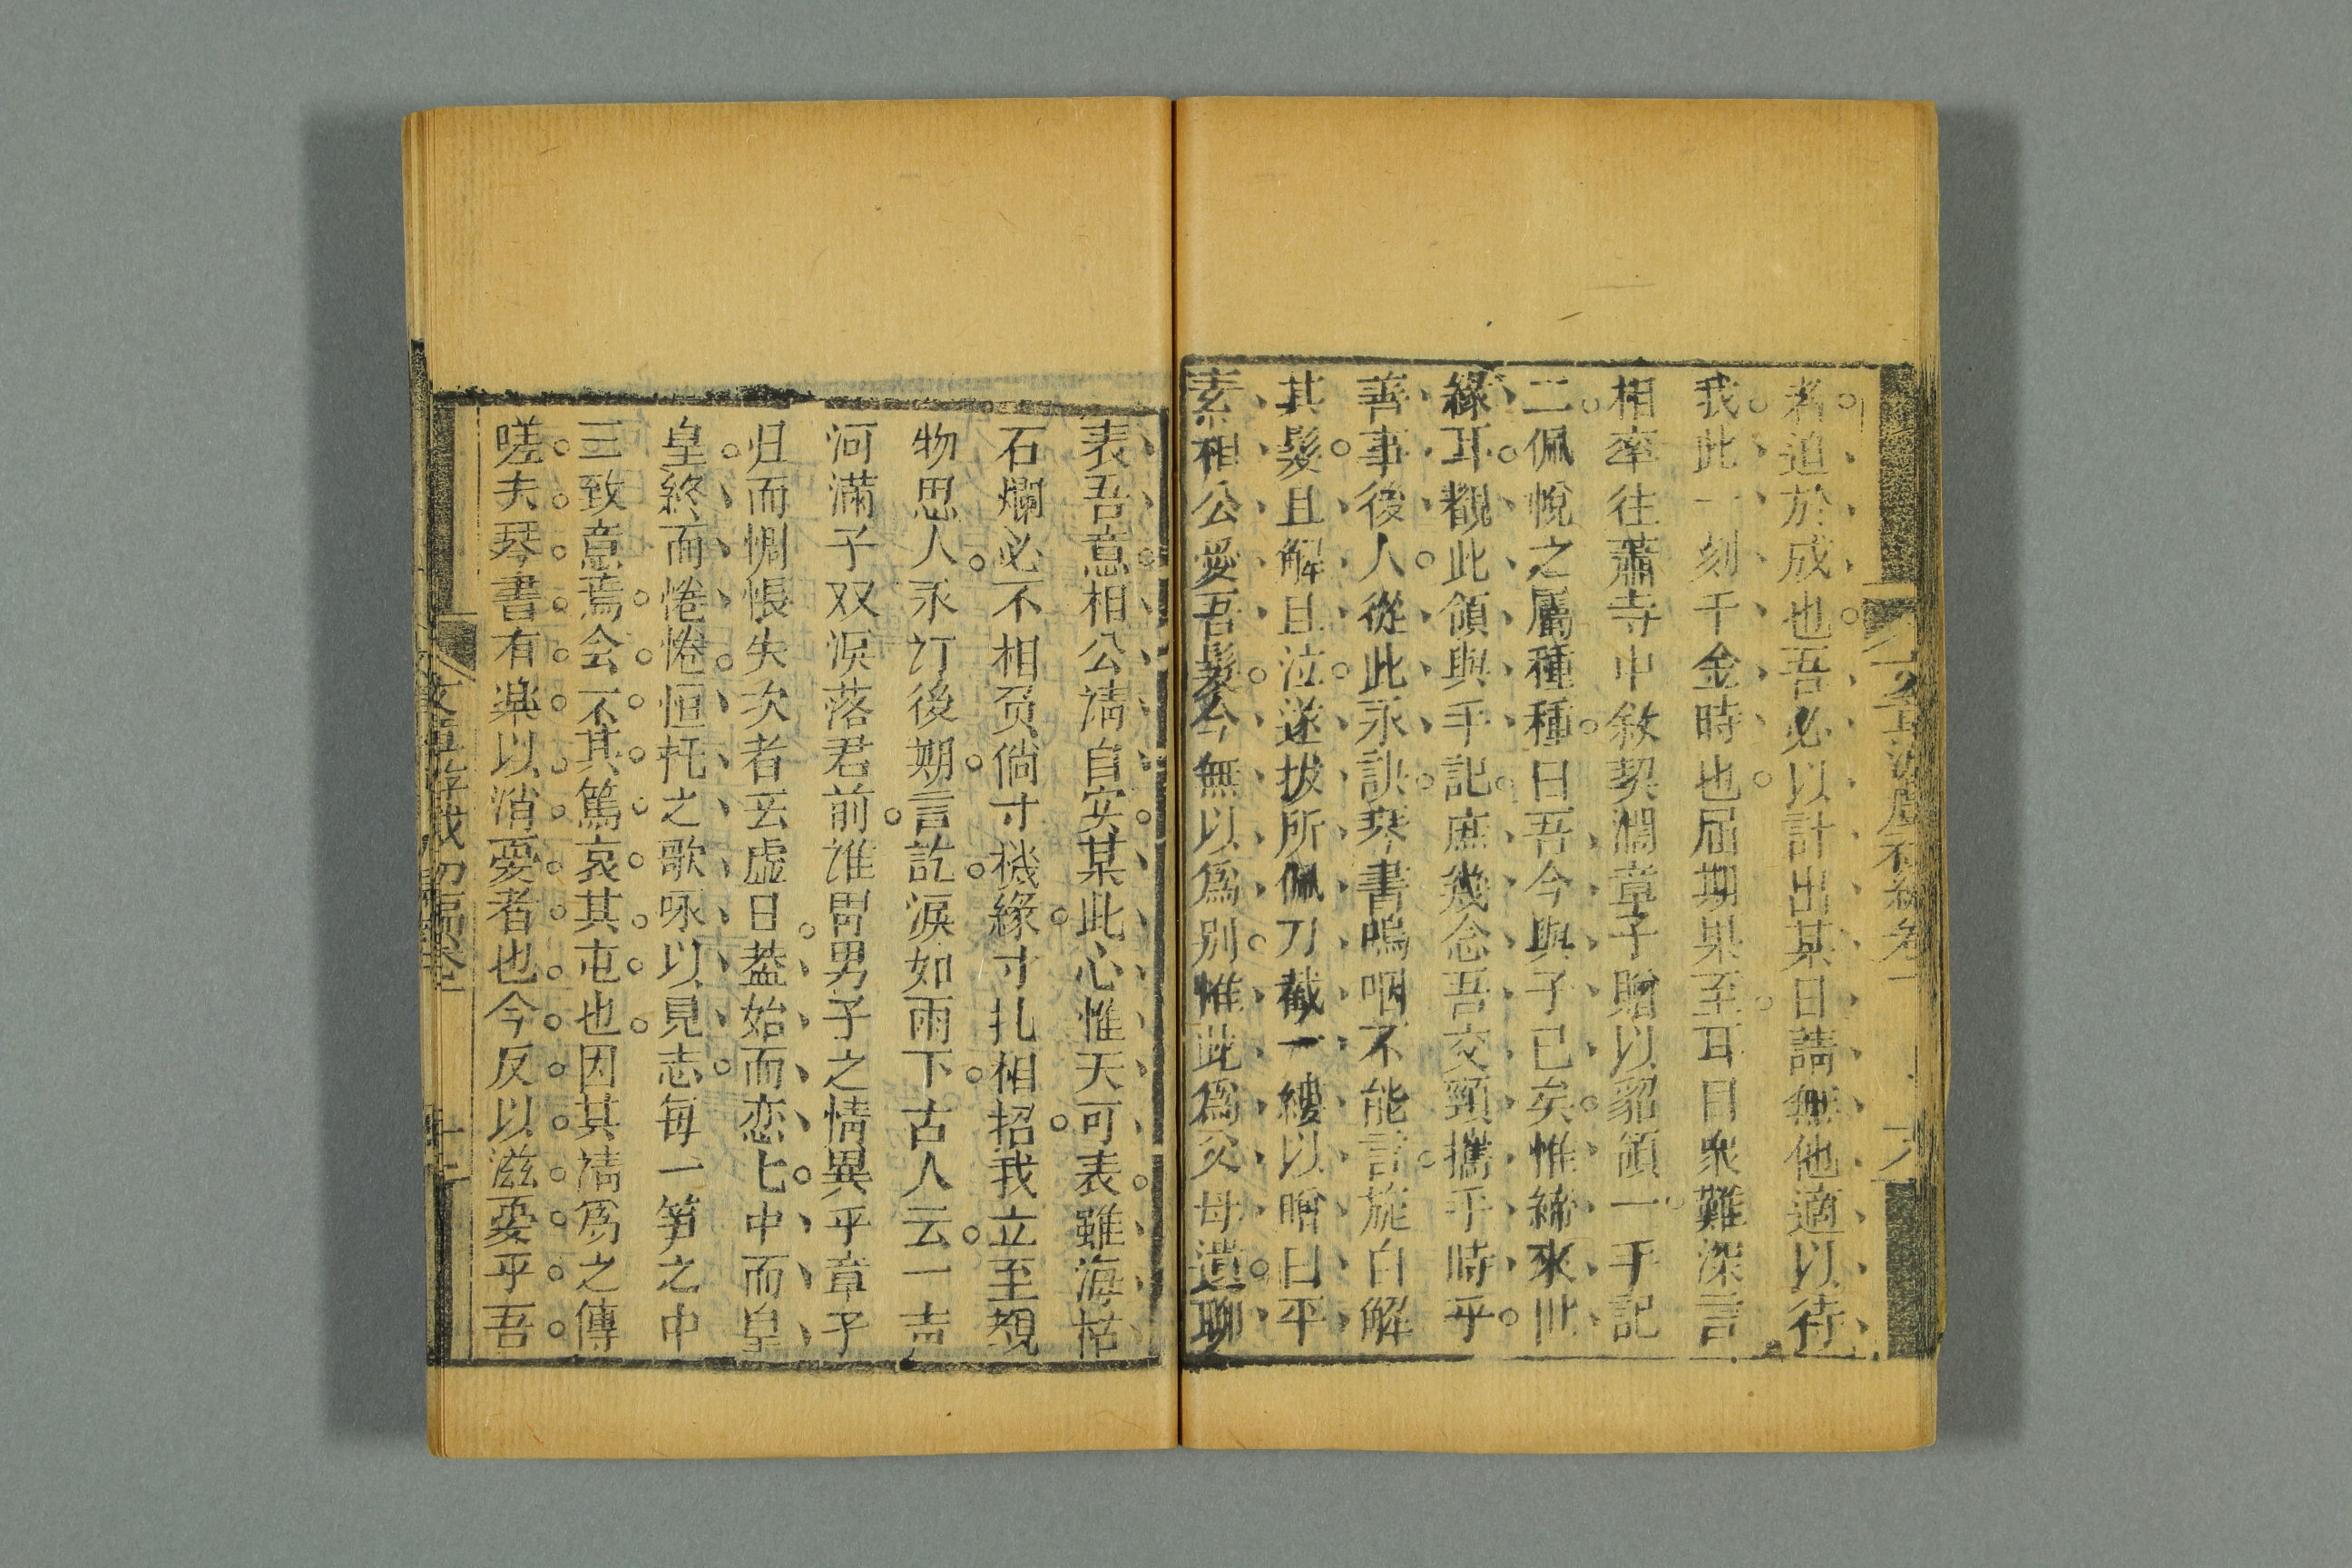 者迫於成也吾必以計出某日請無他適以待
我此一刻千金時也屆期果至耳目衆難深言
相率往蕭寺中敘契濶章子贈以貂領一手記
二佩悅之屬種種曰吾今與子已矣惟締來世
緣耳覩此領與手記庶幾念吾交頸攜手時乎
善事後人從此永訣琴書嗚咽不能言旋自解
其髮且解且泣遂拔所佩刀截一縷以贈曰平
素相公愛吾髮今無以爲別惟此爲父母遺聊
表吾意相公請自安某此心惟天可表雖海枯
石爛必不相负倘寸機緣寸扎相招我立至覩
物思人永订後期言訖淚如雨下古人云一声
河滿子双淚落君前谁胃男子之情異乎章子
归而惆悵失次者云虚日葢始而恋七中而皇
皇終而惓惓恒托之歌咏以見志每一笋之中
三致意焉会不其篤哀其屯也因其请爲之傳
嗟夫琴書有楽以消憂者也今反以滋憂乎吾
十二